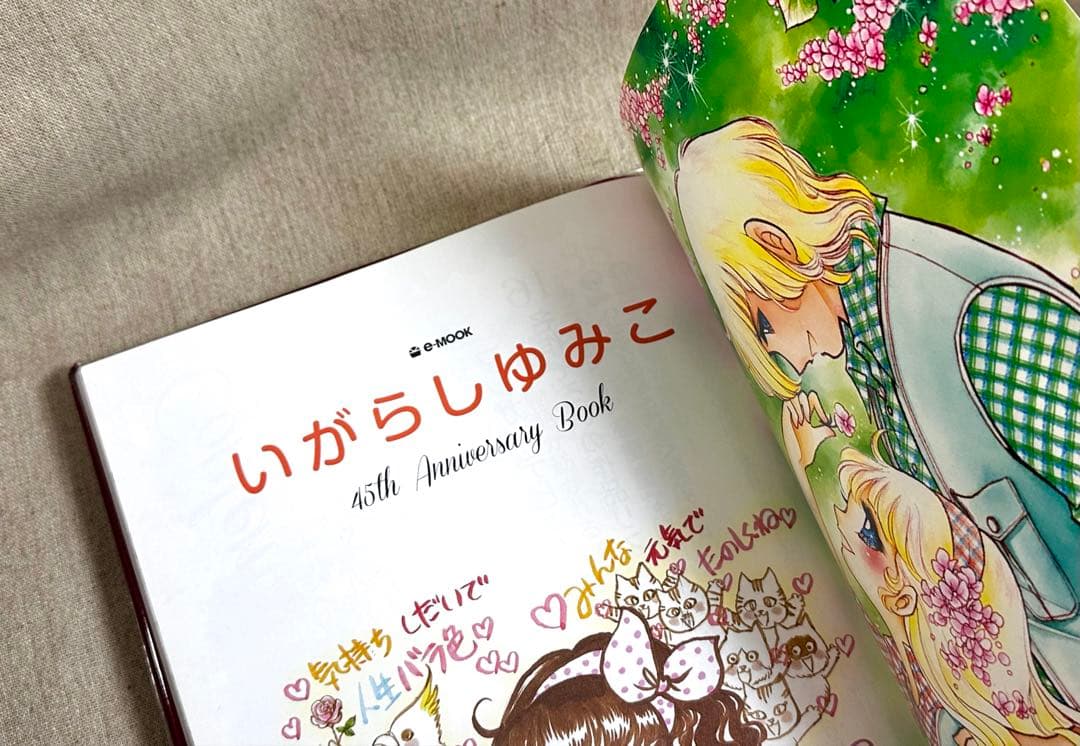 e-MOOK
いがらしゆみこ
45th Anniversary Book
気持ちしだいで
人生バラ色
みんな元気で
たのしくね